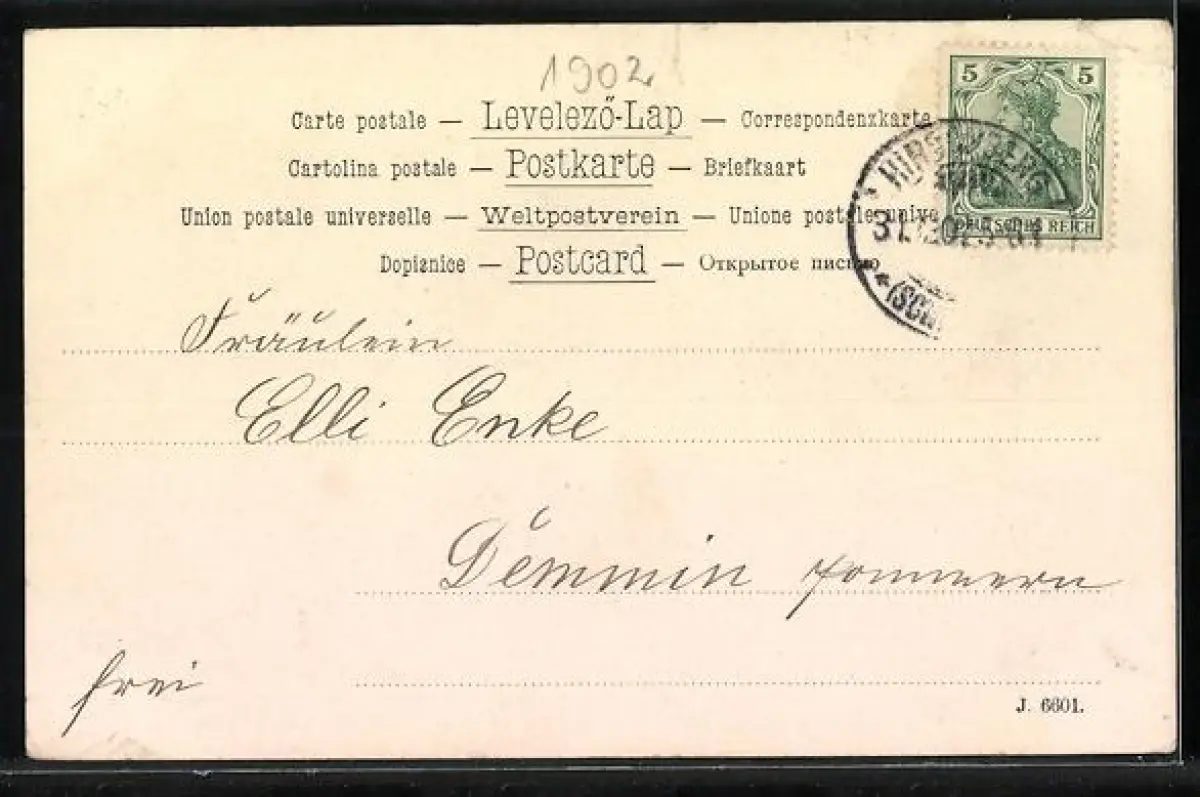 1902
5 5
Carte postale — Levelező-Lap — Correspondenzkarte
Cartolina postale — Postkarte — Briefkaart
Union postale universelle — Weltpostverein — Unione postale unive
DEUTSCHES REICH
Dopisnice — Postcard — Открытое письмо
Fräulein
Elli Enke
Demmin Pommern
frei
J. 6601.